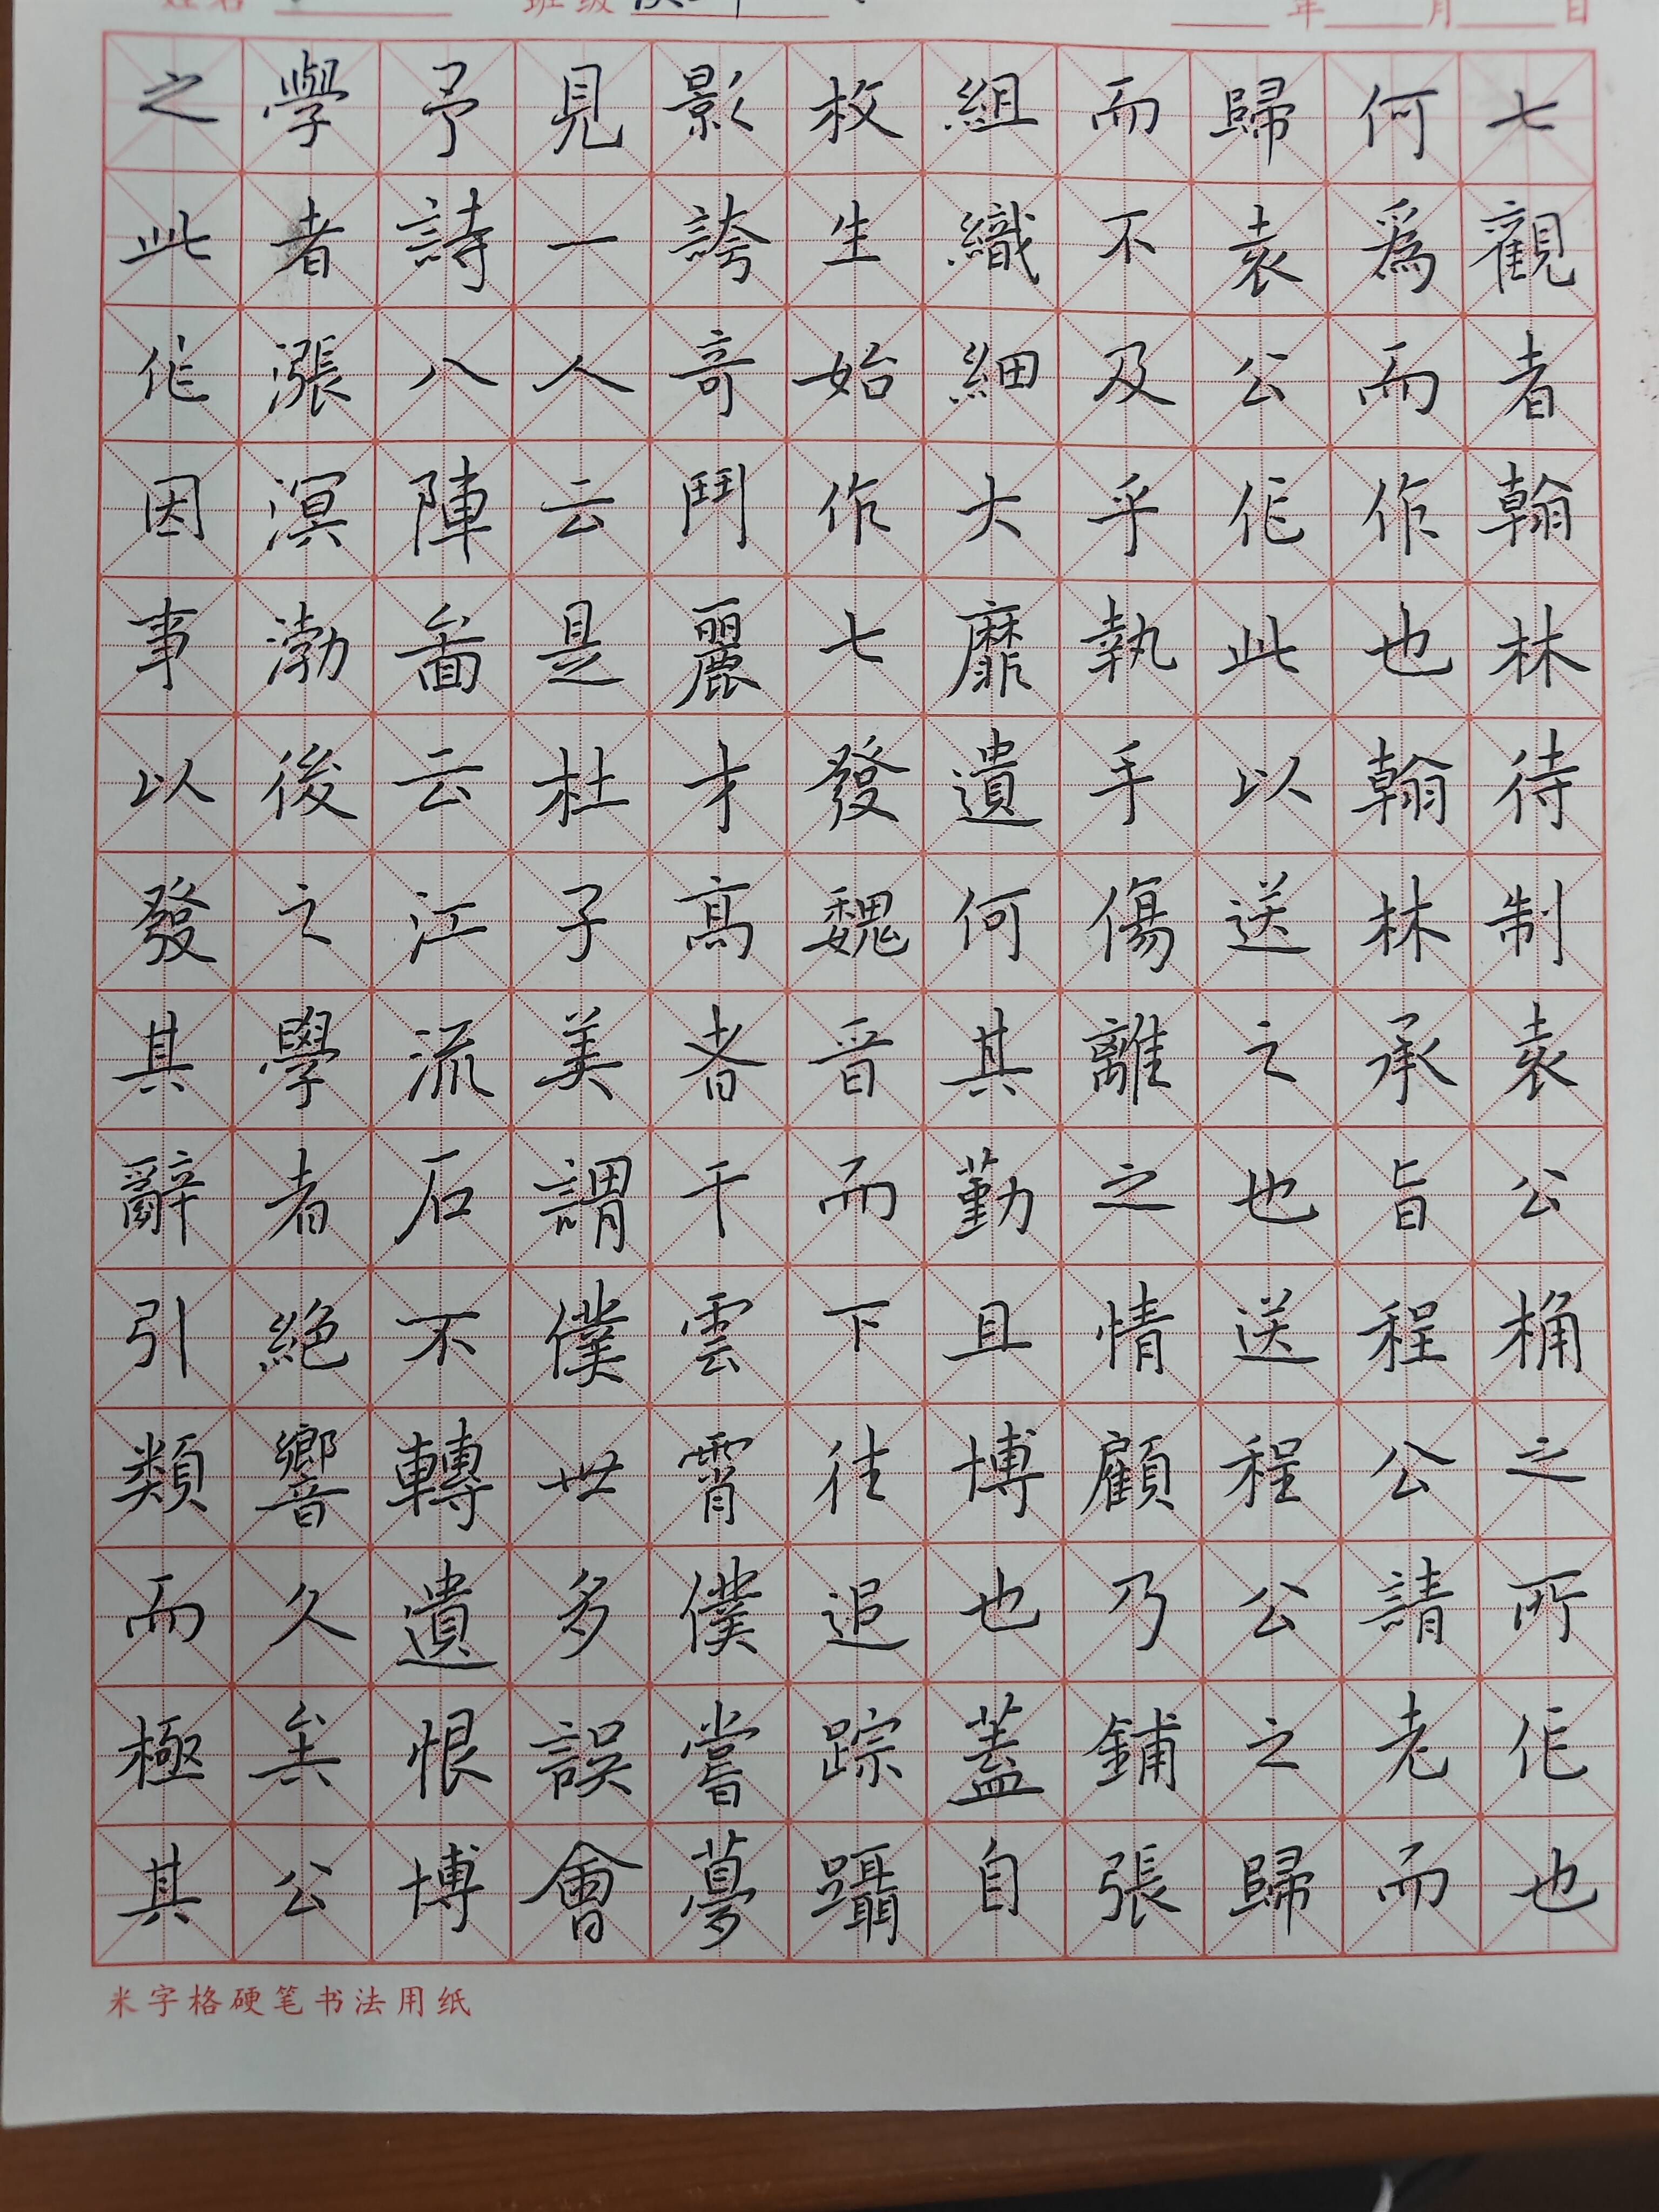 姓名 班级 年 月 日
七觀者翰林待制袁公桷之所作也
何爲而作也翰林承旨程公請老而
歸袁公作此以送之也送程公之歸
而不及乎執手傷離之情顧乃鋪張
組織細大靡遺何其勤且博也蓋自
枚生始作七發魏晉而下往往追踪躡
影誇奇鬥麗才高者干雲霄僕嘗夢
見一人云是杜子美謂僕世多誤會
予詩八陣啚云江流石不轉遺恨博
學者漲溟渤後之學者絕響久矣公
之此作因事以發其辭引類而極其
米字格硬笔书法用纸